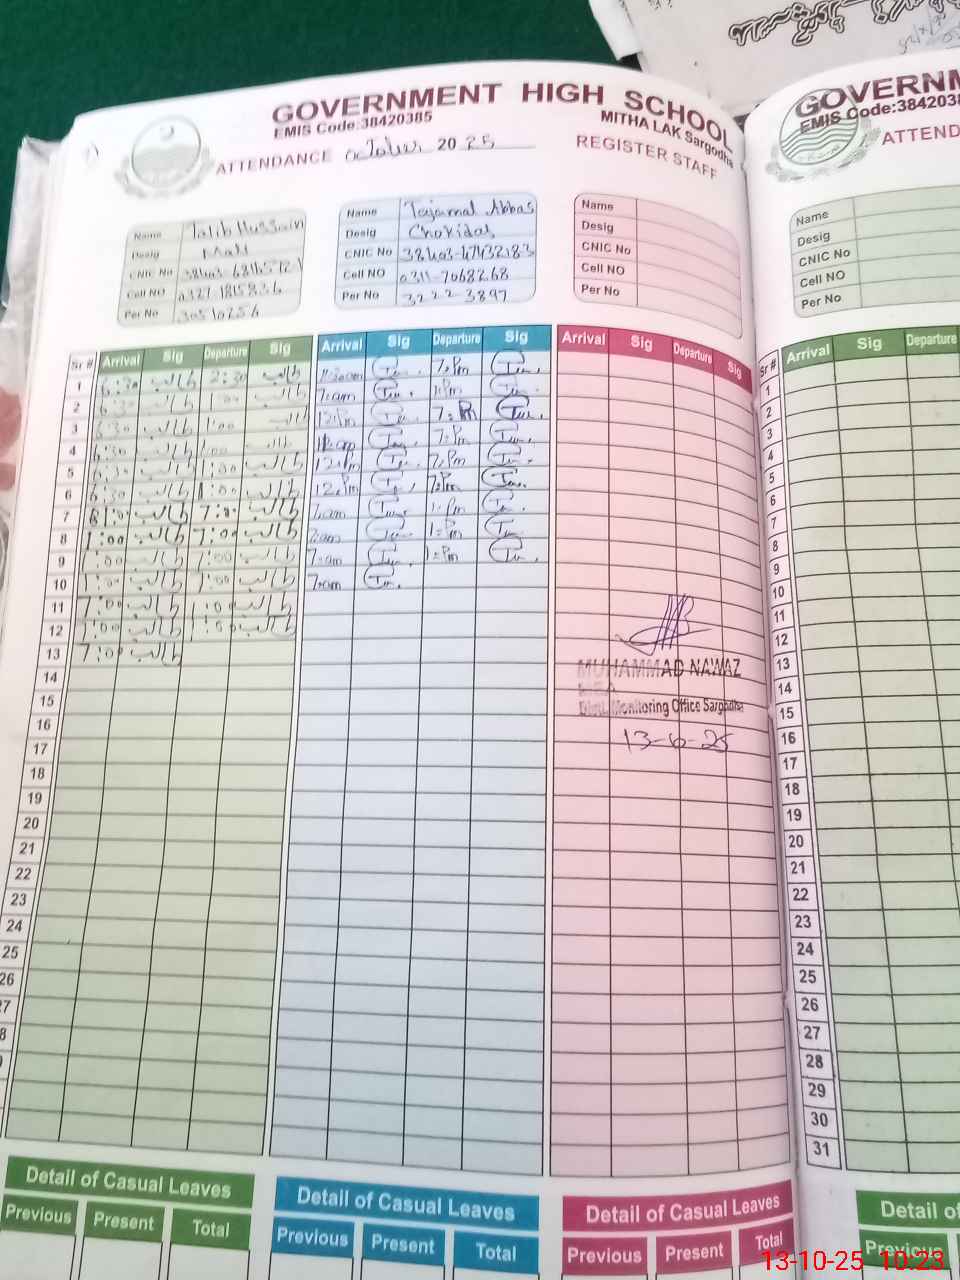 GOVERNMENT HIGH SCHOOL
EMIS Code:38420385
MITHA LAK Sargodha
ATTENDANCE October 2025
REGISTER STAFF
Name Talib Hussain
Desig Mali
CNIC No
Cell NO 0327-1815836
Per No 30510256
Name Tajamal Abbas
Desig Chokidar
CNIC No 38403-4743218-3
Cell NO 0311-7068268
Per No
Name
Desig
CNIC No
Cell NO
Per No
Sr # Arrival Sig Departure Sig Arrival Sig Departure Sig Arrival Sig Departure Sig
1 6:30 طالب 2:30 طالب 7:Pm
2 6:30 طالب 1:00 طالب 7:am 1:Pm
3 6:30 طالب 1:00 طالب 12:Pm 7:Pm
4 6:30 طالب طالب 7:Pm
5 6:30 طالب 1:00 طالب 12:Pm 7:Pm
6 6:30 طالب 1:00 طالب 12:Pm 7:Pm
7 طالب 7:00 طالب 7:am 1:Pm
8 1:00 طالب 7:00 طالب 7:am 1:Pm
9 1:00 طالب 7:00 طالب 7:am 1:Pm
10 1:00 طالب 7:00 طالب 7:am
11 7:00 طالب 1:00 طالب
12 7:00 طالب 1:00 طالب
13 7:00 طالب
14
15
16
17
18
19
20
21
22
23
24
25
26
27
MUHAMMAD NAWAZ
MEA
Distt. Monitoring Office Sargodha
Detail of Casual Leaves
Previous Present Total
Detail of Casual Leaves
Previous Present Total
Detail of Casual Leaves
Previous Present Total
GOVERNM
EMIS Code:3842038
ATTEND
Name
Desig
CNIC No
Cell NO
Per No
Sr # Arrival Sig Departure
1
2
3
4
5
6
7
8
9
10
11
12
13
14
15
16
17
18
19
20
21
22
23
24
25
26
27
28
29
30
31
Detail of
Previous
13-10-25 10:23